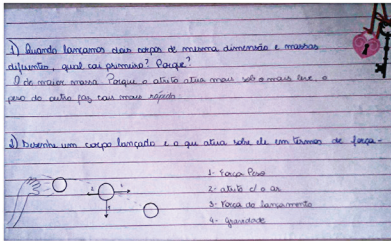 1) Quando lançamos dois corpos de mesma dimensão e massas
diferentes, qual cai primeiro? Porque?
O de maior massa. Porque o atrito atua mais sob o mais leve, o
peso do outro faz cair mais rápido
2) Desenhe um corpo lançado e o que atua sobre ele em termos de força-
1- Força Peso
2- atrito c/ o ar
3- Força de lançamento
4- Gravidade